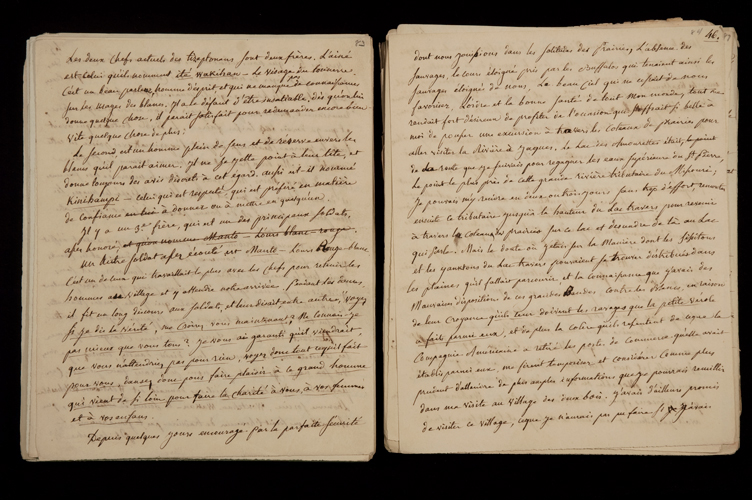 Les deux Chefs actuels des tizaptonans sont deux frères. L'ainé
est celui qu'ils nomment ité wakihan — Le visage du tonnerre.
C'est un beau parleur, homme d'esprit et qui ne manque pas de
sur les usages du blanc. Il a le défaut d'être insatiable, dès qu'on lui
donne quelque chose, il parait satisfait pour redemander encore bien
vite quelque chose de plus.
Le second est un homme plein de sens et de réserve envers les
blancs qu'il parait aimer. Il ne se jette point à leur tête, et
donne toujours des avis discrets à cet égard. aussi est-il surnommé
Kinihanpi — celui qui est respecté, qui est préféré en matière
de confiance à donner ou à mettre en quelqu'un.
Il y a un 3e frère, qui est un des principaux soldats,
assez honoré et qu'on nomme Manto — L'ours blanc — rouge.
un autre soldat assez écouté est Manto — L'ours Rouge blanc
C'est un de ceux qui travaillait le plus avec les Chefs pour retenir les
hommes au village et y attendre notre arrivée. Pendant les danses,
il fit un long discours aux soldats, et leur disait entre autres, voyez
si je dis la vérité, me croirez vous maintenant? Ne connais-je
pas mieux que vous tous? Je vous ai garanti qu'il viendrait,
que vous n'attendriez pas pour rien, voyez donc tout ce qu'il fait
pour vous. dansez donc pour faire plaisir à ce grand homme
qui vient de si loin pour faire la charité à vous, à vos femmes
et à vos enfans.
Depuis quelques jours encouragé par la parfaite sécurité
46.
dont nous jouissons dans les solitudes des Prairies, l'absence des
Sauvages, le cours éloigné pris par les Buffalos qui tenaient ainsi les
sauvages éloignés de nous. Le beau Ciel qui ne cessait de nous
favoriser. Loisir et la bonne santé de tout mon monde, tout me
rendait fort désireux de profiter de l'occasion qui s'offrait si belle à
moi de pousser une excursion à travers les Coteaux des prairies pour
aller visiter la Rivière à Jacques. Le Lac des étant le point
de la route que je suivais pour regagner les eaux supérieures du St Pierre,
le point le plus près de cette grande rivière tributaire du Missouri,
Je pouvais m'y rendre en deux ou trois jours sans trop d'effort, remonter
ensuite ce tributaire jusqu'à la hauteur du Lac travers pour revenir
à travers les Coteaux des prairies sur ce lac et descendre de là au Lac
qui parle. Mais le doute où j'étais sur la Manière dont les Sissitons
et les yanktons du Lac travers pouvaient se trouver distribués dans
les plaines qu'il fallait parcourir, et la connaissance que j'avais des
Mauvaises dispositions de ces grandes Bandes contre les blancs, en raison
de leur Croyance qu'ils leur doivent les ravages que la petite vérole
a fait parmi eux, et de plus la colère qu'ils ressentent de ce que la
Compagnie Américaine a retiré les postes de commerce qu'elle avait
établis parmi eux, me firent temporiser et considérer comme plus
prudent d'attendre de plus amples informations que je pourrais recueillir
dans ma visite au village des deux bois. j'avais d'ailleurs promis
de visiter ce village, ce que je n'aurais pas pu faire si j'avais